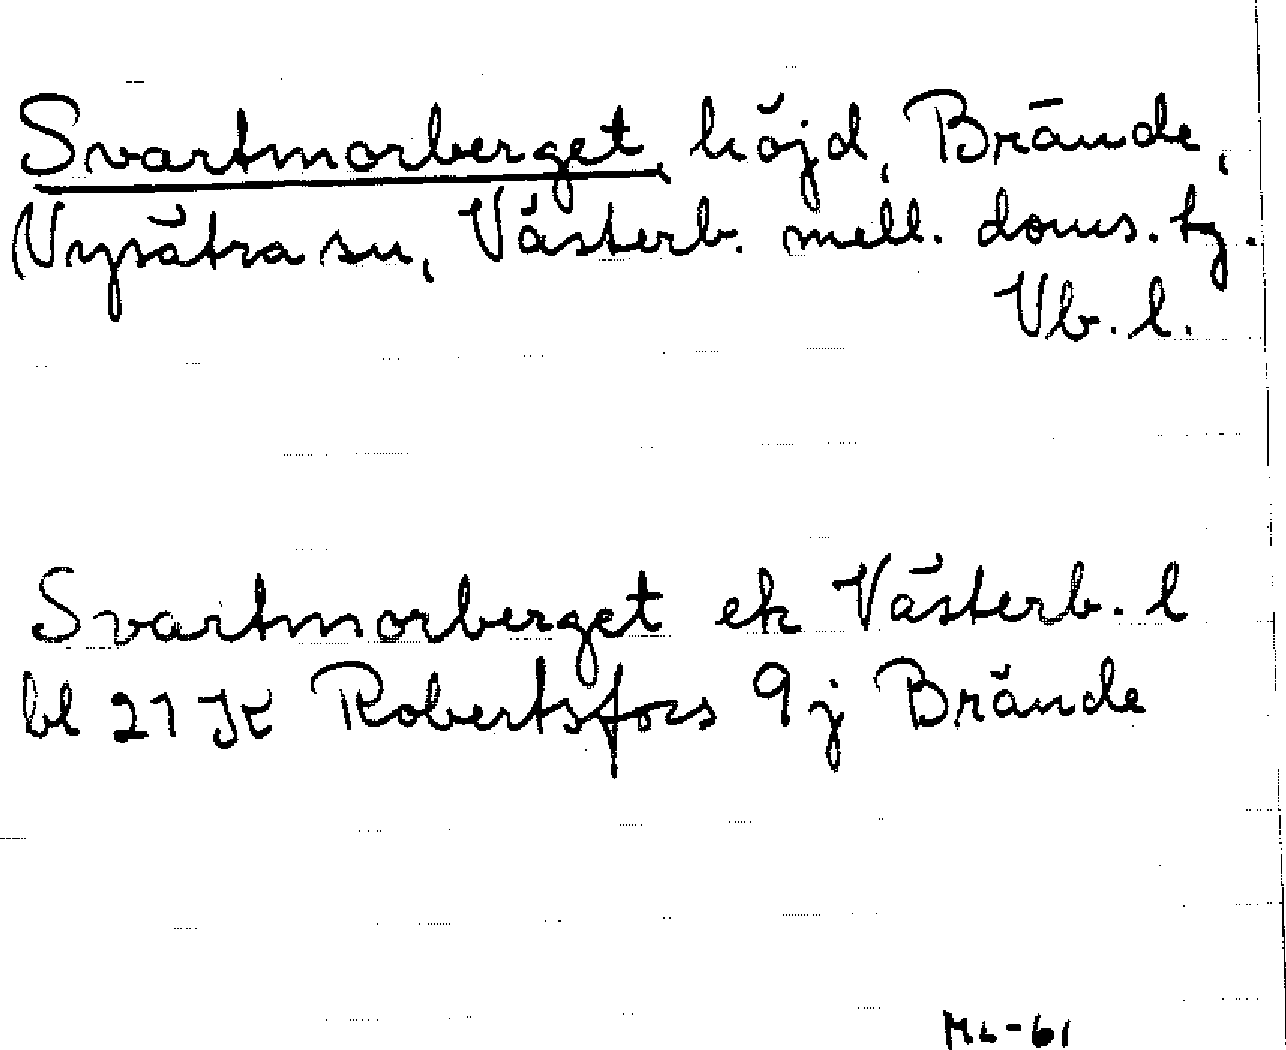 Svartmorberget, höjd, Brände,
Nysätra sn, Västerb. mell. doms. tg.
Vb. l.
Svartmorberget ek Västerb. l
bl 21 K Robertsfors 9j Brände
ML-61